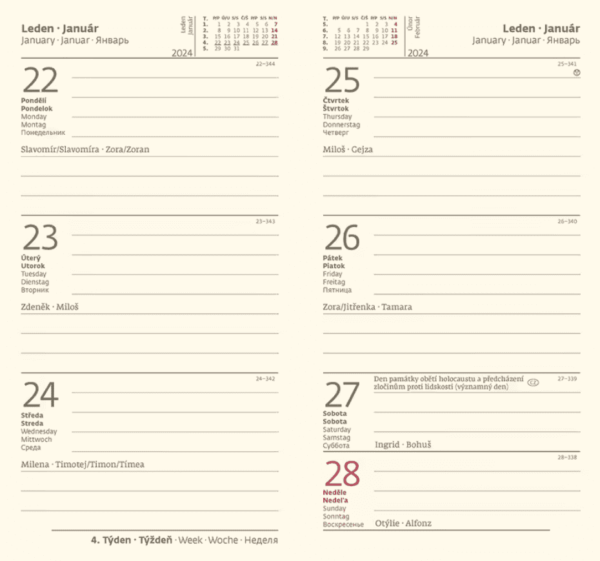 Leden · Január
January · Januar · Январь
Leden
Január
2024
T. PO ÚT/UT ST ČT/ŠT PÁ/PI SO NE
1. 1 2 3 4 5 6 7
2. 8 9 10 11 12 13 14
3. 15 16 17 18 19 20 21
4. 22 23 24 25 26 27 28
5. 29 30 31
22
22–344
Pondělí
Pondelok
Monday
Montag
Понедельник
Slavomír/Slavomíra · Zora/Zoran
23
23–343
Úterý
Utorok
Tuesday
Dienstag
Вторник
Zdeněk · Miloš
24
24–342
Středa
Streda
Wednesday
Mittwoch
Среда
Milena · Timotej/Timon/Tímea
4. Týden · Týždeň · Week · Woche · Неделя
Únor
Február
2024
5. 1 2 3 4
6. 5 6 7 8 9 10 11
7. 12 13 14 15 16 17 18
8. 19 20 21 22 23 24 25
9. 26 27 28 29
Leden · Január
January · Januar · Январь
25
25–341
Čtvrtek
Štvrtok
Thursday
Donnerstag
Четверг
Miloš · Gejza
26
26–340
Pátek
Piatok
Friday
Freitag
Пятница
Zora/Jitřenka · Tamara
27
Den památky obětí holocaustu a předcházení
zločinům proti lidskosti (významný den)
CZ
27–339
Sobota
Sobota
Saturday
Samstag
Суббота
Ingrid · Bohuš
28
28–338
Neděle
Nedeľa
Sunday
Sonntag
Воскресенье
Otýlie · Alfonz